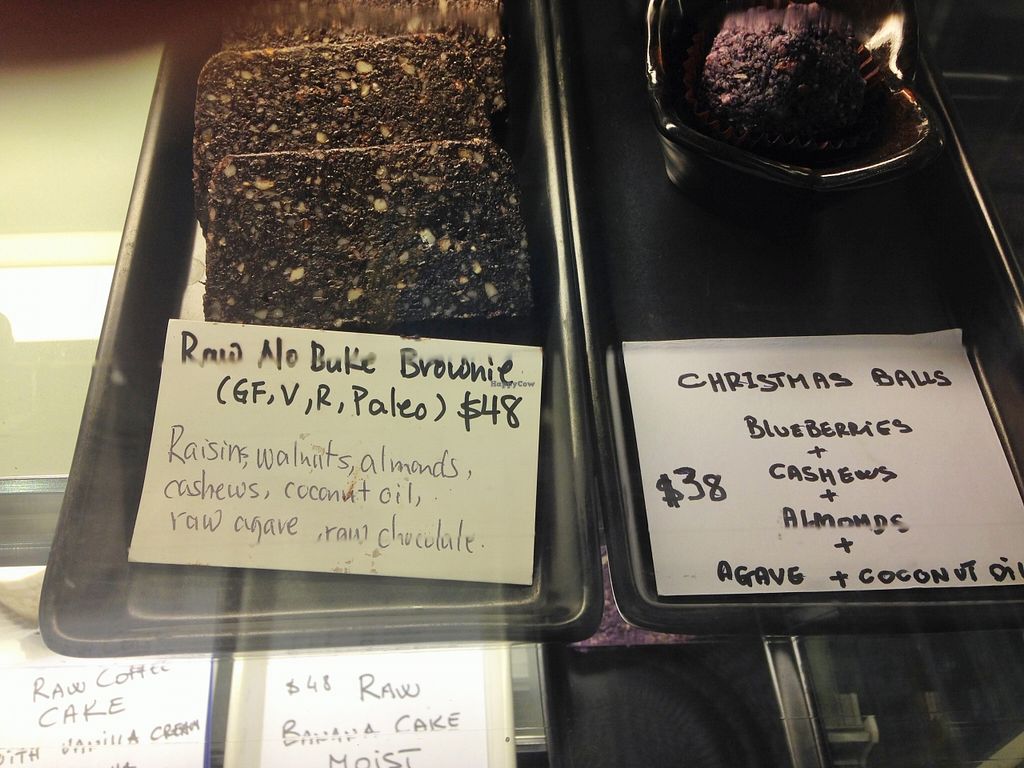 Raw No Bake Brownie
(GF, V, R, Paleo) $48
Raisins, walnuts, almonds,
cashews, coconut oil,
raw agave, raw chocolate.
HappyCow
CHRISTMAS BALLS
BLUEBERRIES
+
CASHEWS
$38
+
ALMONDS
+
AGAVE + COCONUT OIL
RAW COFFEE
CAKE
WITH VANILLA CREAM
$48 RAW
BANANA CAKE
MOIST